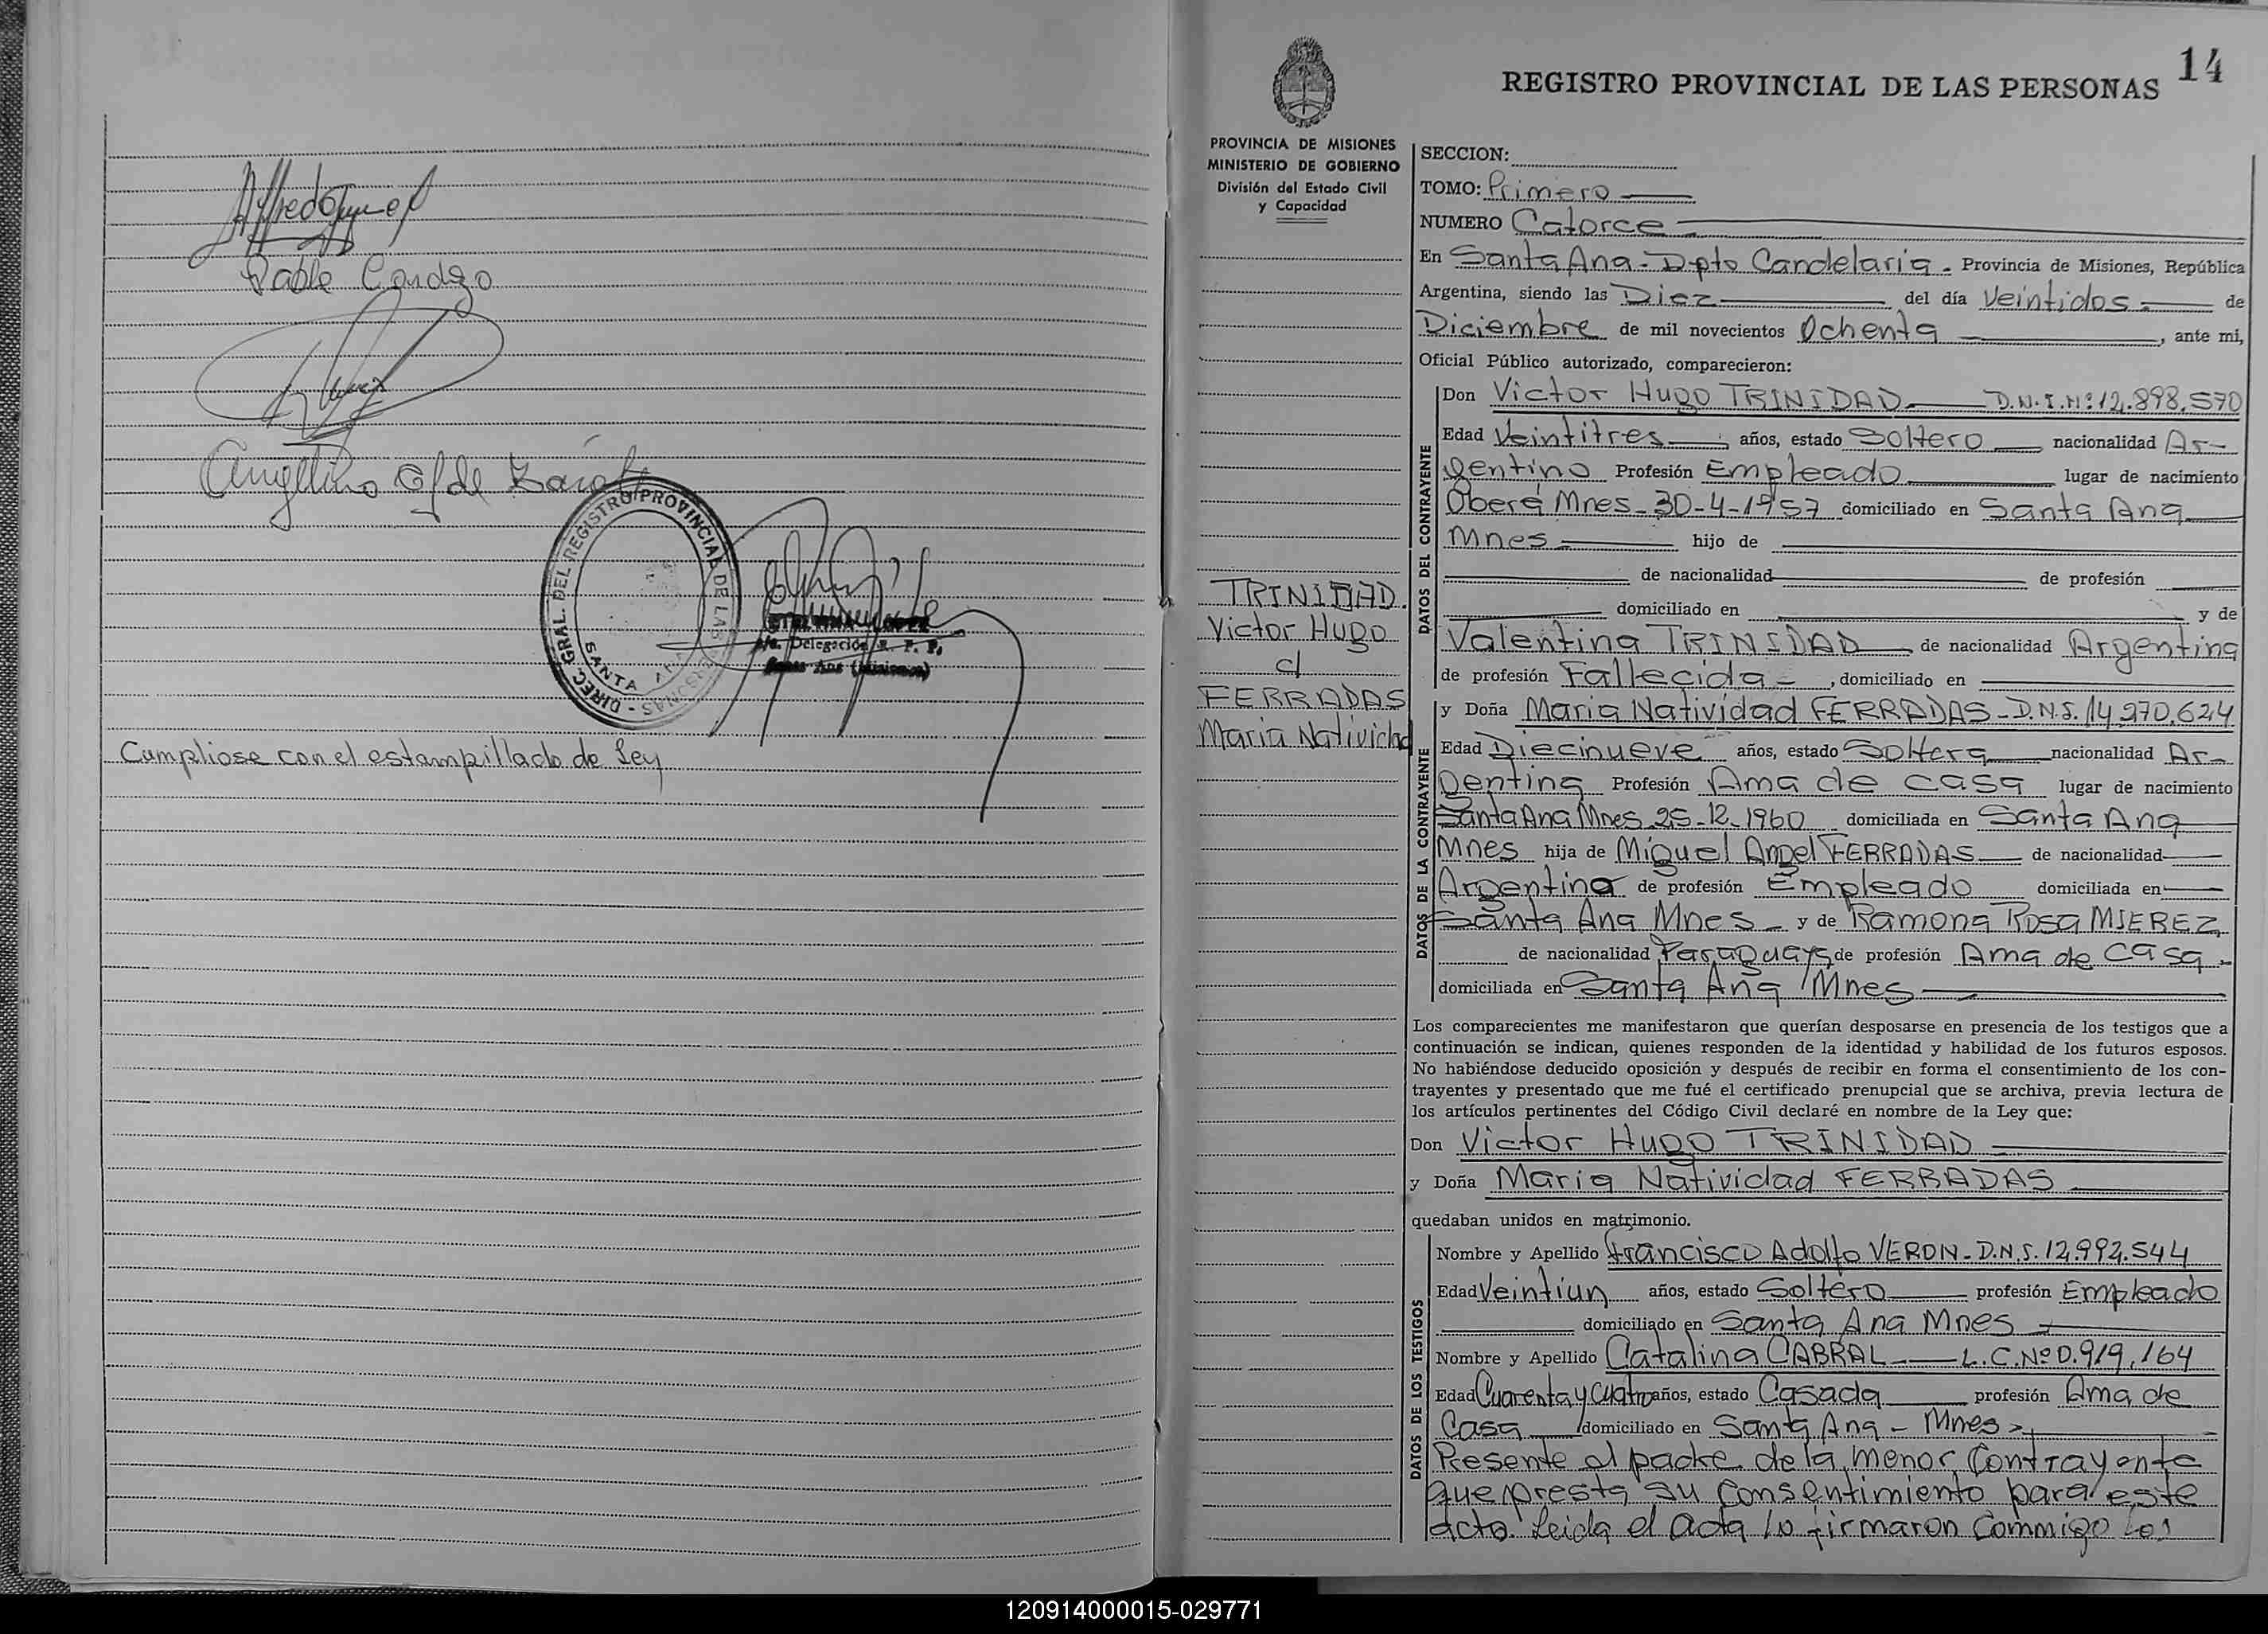 Pable Cardozo
DIREC. GRAL. DEL REGISTRO PROVINCIAL DE LAS PERSONAS -
SANTA ANA
Delegación R. P. P.
Santa Ana (Misiones)
Cumpliose con el estampillado de Ley
14
REGISTRO PROVINCIAL DE LAS PERSONAS
PROVINCIA DE MISIONES
MINISTERIO DE GOBIERNO
División del Estado Civil
y Capacidad
TRINIDAD.
Victor Hugo
c/
FERRADAS
Maria Natividad
SECCION:
TOMO: Primero
NUMERO Catorce
En Santa Ana - Dpto Candelaria - Provincia de Misiones, República
Argentina, siendo las Diez del día Veintidos - de
Diciembre de mil novecientos Ochenta , ante mi,
Oficial Público autorizado, comparecieron:
DATOS DEL CONTRAYENTE
Don Victor Hugo TRINIDAD D.N.I.Nº12.898.570
Edad Veintitres años, estado Soltero nacionalidad Ar-
gentino Profesión Empleado lugar de nacimiento
Oberá Mnes - 30-4-1957 domiciliado en Santa Ana
Mnes hijo de
de nacionalidad de profesión
domiciliado en y de
Valentina TRINIDAD de nacionalidad Argentina
de profesión Fallecida - , domiciliado en
DATOS DE LA CONTRAYENTE
y Doña Maria Natividad FERRADAS - D.N.I. 14.270.624
Edad Diecinueve años, estado Soltera nacionalidad Ar-
gentina Profesión Ama de casa lugar de nacimiento
Santa Ana Mnes 25-12-1960 domiciliada en Santa Ana
Mnes hija de Miguel Angel FERRADAS de nacionalidad
Argentino de profesión Empleado domiciliada en
Santa Ana Mnes - y de Ramona Rosa MIEREZ
de nacionalidad Paraguaya de profesión Ama de casa -
domiciliada en Santa Ana Mnes
Los comparecientes me manifestaron que querían desposarse en presencia de los testigos que a
continuación se indican, quienes responden de la identidad y habilidad de los futuros esposos.
No habiéndose deducido oposición y después de recibir en forma el consentimiento de los con-
trayentes y presentado que me fué el certificado prenupcial que se archiva, previa lectura de
los artículos pertinentes del Código Civil declaré en nombre de la Ley que:
Don Victor Hugo TRINIDAD
y Doña Maria Natividad FERRADAS
quedaban unidos en matrimonio.
DATOS DE LOS TESTIGOS
Nombre y Apellido Francisco Adolfo VERON - D.N.I. 12.992.544
Edad Veintiun años, estado Soltero profesión Empleado
domiciliado en Santa Ana Mnes
Nombre y Apellido Catalina CABRAL L.C.Nº 0.919.164
Edad Cuarenta y Cuatro años, estado Casada profesión Ama de
Casa domiciliado en Santa Ana - Mnes
Presente el padre de la menor contrayente
que presta su consentimiento para este
acto. Leida el acta lo firmaron commigo los
120914000015-029771